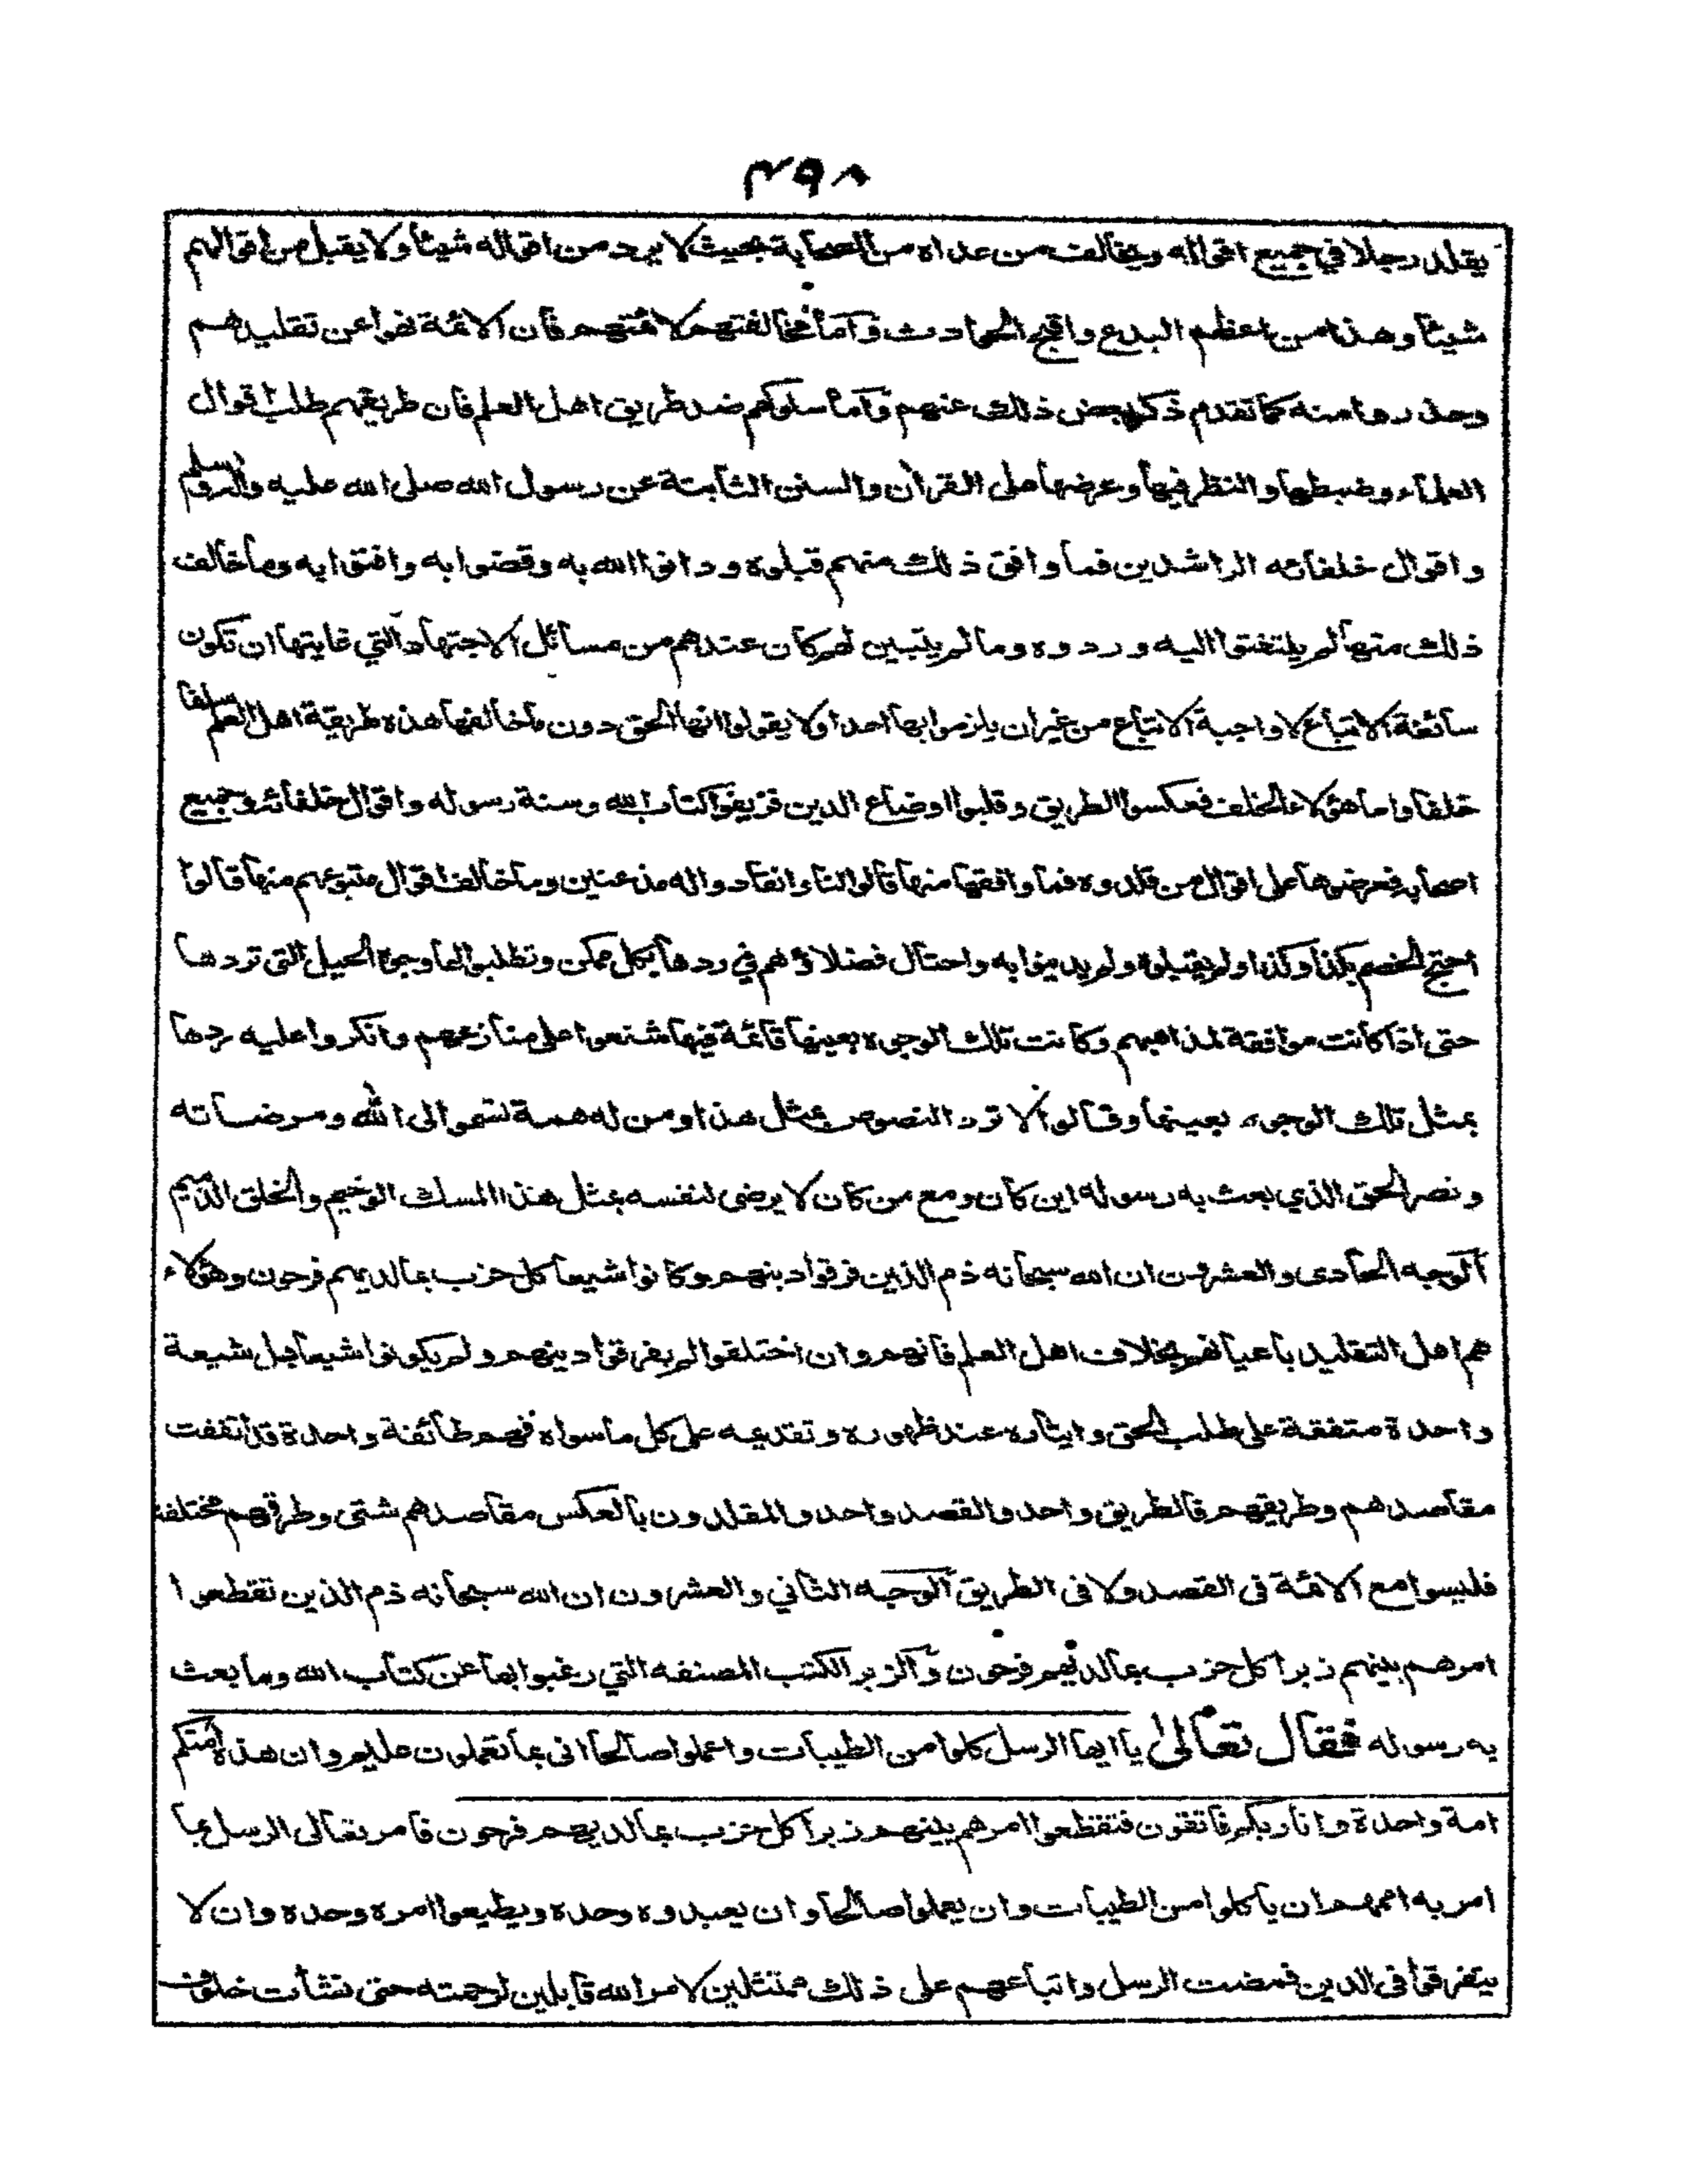 ٤٩٨
يقلد رجلا في جميع اقواله ويخالف من عداه من الصحابة بحيث لا يرد من اقواله شيئا ولا يقبل من اقوالهم
شيئا وهذا من اعظم البدع واقبح الحوادث وأما مخالفتهم لائمتهم فان الائمة نهوا عن تقليدهم
وحذروا منه كما تقدم ذكر بعض ذلك عنهم وأما سلوكهم ضد طريق اهل العلم فان طريقهم طلب اقوال
العلماء وضبطها والنظر فيها وعرضها على القرآن والسنن الثابتة عن رسول الله صلى الله عليه وآله وسلم
واقوال خلفائه الراشدين فما وافق ذلك منهم قبلوه ودانوا الله به وقضوا به وافتوا به وما خالف
ذلك منها لم يلتفتوا اليه وردوه وما لم يتبين لهم كان عندهم من مسائل الاجتهاد التي غايتها ان تكون
سائغة الاتباع لا واجبة الاتباع من غير ان يلزموا بها احدا ولا يقولوا انها الحق دون ما خالفها هذه طريقة اهل العلم سلفا
خلفا واما هؤلاء الخلف فعكسوا الطريق وقلبوا اوضاع الدين فزيفوا كتاب الله وسنة رسوله واقوال خلفائه وجميع
اصحابه فعرضوها على اقوال من قلدوه فما وافقها منها قالوا لنا وانقادوا له مذعنين وما خالف اقوال متبوعهم منها قالوا
احتج الخصم بكذا وكذا ولم يقبلوه ولم يدينوا به واحتال فضلاؤهم في ردها بكل ممكن وتطلبوا لها وجوه الحيل التى تردها
حتى اذا كانت موافقة لمذاهبهم وكانت تلك الوجوه بعينها قائمة فيها شنعوا على منازعهم وانكروا عليه ردها
بمثل تلك الوجوه بعينها وقالوا لا ترد النصوص بمثل هذا ومن له همة تسموا الى الله ومرضاته
ونصر الحق الذي بعث به رسوله اين كان ومع من كان لا يرضى لنفسه بمثل هذا المسلك الوخيم والخلق الذميم
الوجه الحادى والعشرون ان الله سبحانه ذم الذين فرقوا دينهم وكانوا شيعا كل حزب بما لديهم فرحون وهؤلاء
هم اهل التقليد باعيانهم بخلاف اهل العلم فانهم وان اختلفوا لم يفرقوا دينهم ولم يكونوا شيعا بل شيعة
واحدة متفقة على طلب الحق وايثاره عند ظهوره وتقديمه على كل ما سواه فهم طائفة واحدة قد اتفقت
مقاصدهم وطريقهم فالطريق واحد والقصد واحد والمقلدون بالعكس مقاصدهم شتى وطرقهم مختلفة
فليسوا مع الائمة فى القصد ولا فى الطريق الوجه الثاني والعشرون ان الله سبحانه ذم الذين تقطعوا
امرهم بينهم زبرا كل حزب بما لديهم فرحون والزبر الكتب المصنفه التي رغبوا بها عن كتاب الله وما بعث
به رسوله فقال تعالى يا ايها الرسل كلوا من الطيبات واعملوا صالحا انى بما تعملون عليم وان هذه امتكم
امة واحدة وانا ربكم فاتقون فتقطعوا امرهم بينهم زبرا كل حزب بما لديهم فرحون فامر تعالى الرسل بما
امر به اممهم ان ياكلوا من الطيبات وان يعملوا صالحا وان يعبدوه وحده ويطيعوا امره وحده وان لا
يتفرقوا فى الدين فمضت الرسل واتباعهم على ذلك ممتثلين لامر الله قابلين لرحمته حتى نشأت خلوف